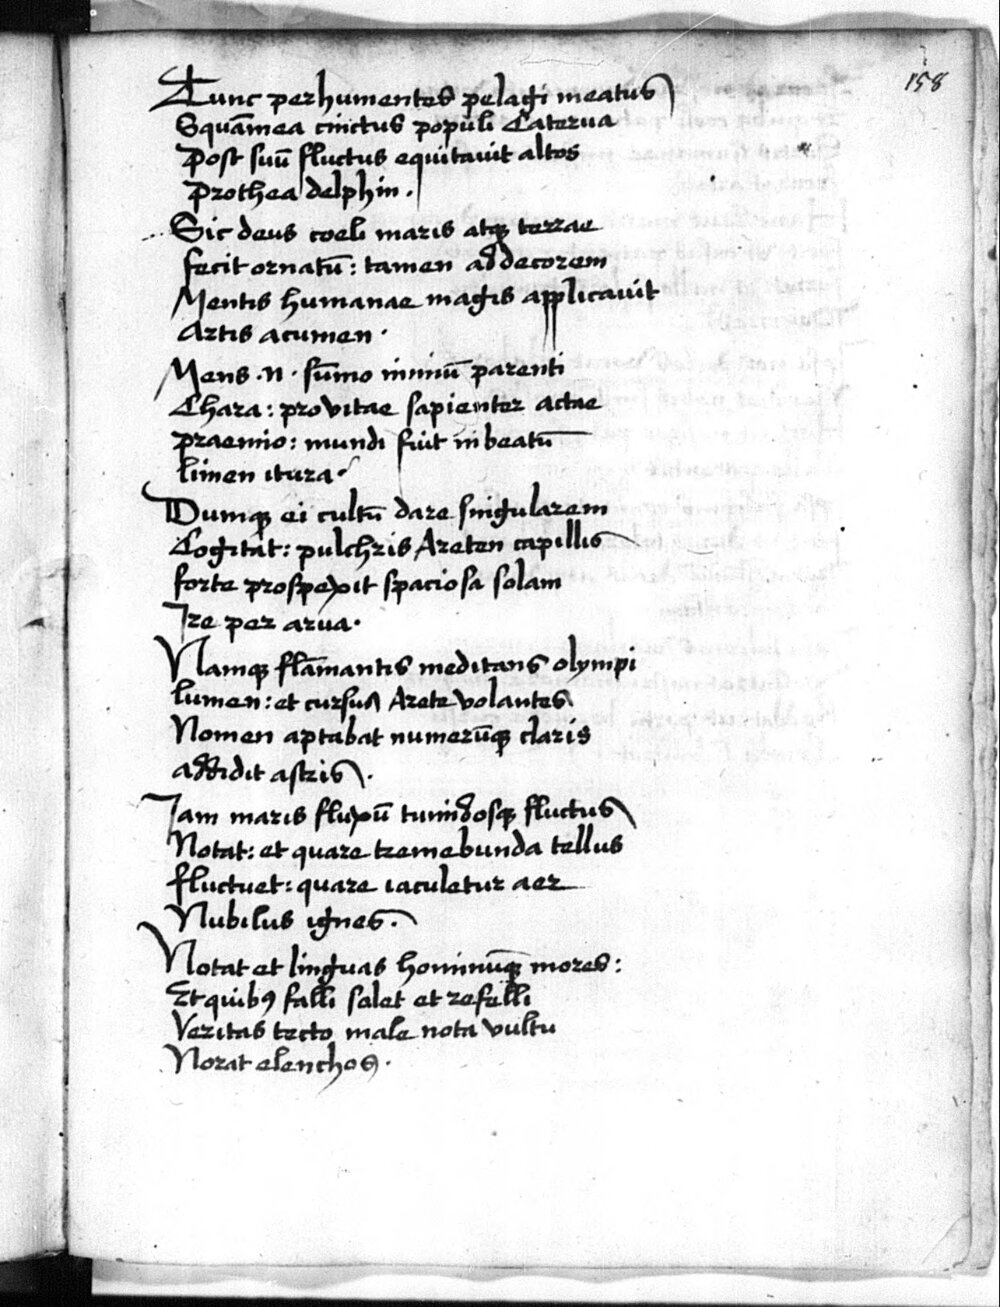 158
Tunc per humentes pelagi meatus
Squām̄ea cinctus populi Caterua
Post suū fluctus equitauit altos
Prothea delphin.
Sic deus coeli maris atq; terrae
fecit ornatū: tamen ad decorem
Mentis humanae magis applicauit
Artis acumen.
Mens .n. sūmo nimiū parenti
Chara: pro vitae sapienter actae
praemio: mundi fuit in beatū
limen itura.
Dumq; ei cultū dare singularem
Cogitat: pulchris Areten capillis
forte prospexit spaciosa solam
Ire per arua.
Namq; flāmantis meditans olympi
lumen: et cursus Arete volantes
Nomen aptabat numerūq; claris
addidit astris.
Iam maris fluxū tumidosq; fluctus
Notat: et quare tremebunda tellus
fluctuet: quare iaculetur aer
Nubilus ignes.
Notat et linguas hominūq; mores:
Et quibꝯ falli solet et refelli
Veritas tecto male nota vultu
Norat elenchos.